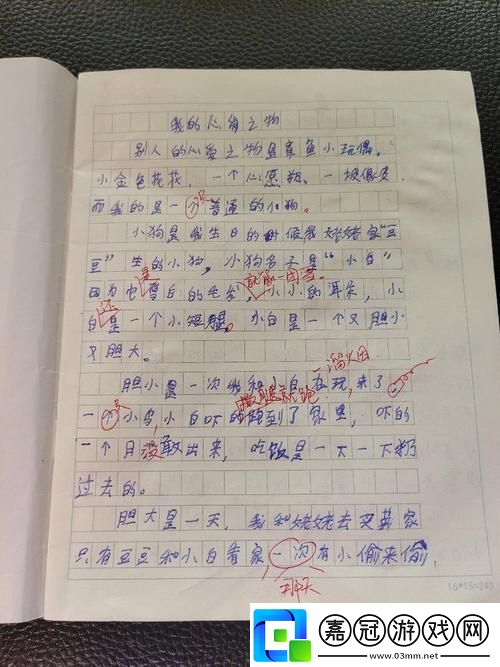 我的心爱之物
别人的心爱之物是章鱼小玩偶,
小金色花花,一个心愿瓶、一
而我的是一只普通的小狗。
小狗是我生日的时候,我姥姥家"豆
豆"生的小狗,小狗名子是"小白"
是 就像一团雪。
因为它雪白的毛发,小小的耳朵,小
还
白是一个小短腿。小白是一个又胆小
又胆大。
一溜火团
胆小是一次我和小白在玩,来了
撒腿就跑
一个小鸟,小白吓的跑到了家里,吓的
一个月没敢出来,吃饭是一下一下扔
过去的。
胆大是一天,我和姥姥去买菜家
只有豆豆和小白看家一次有小偷来偷,
那天
16*15=240
嘉冠游戏网
www.03mm.net